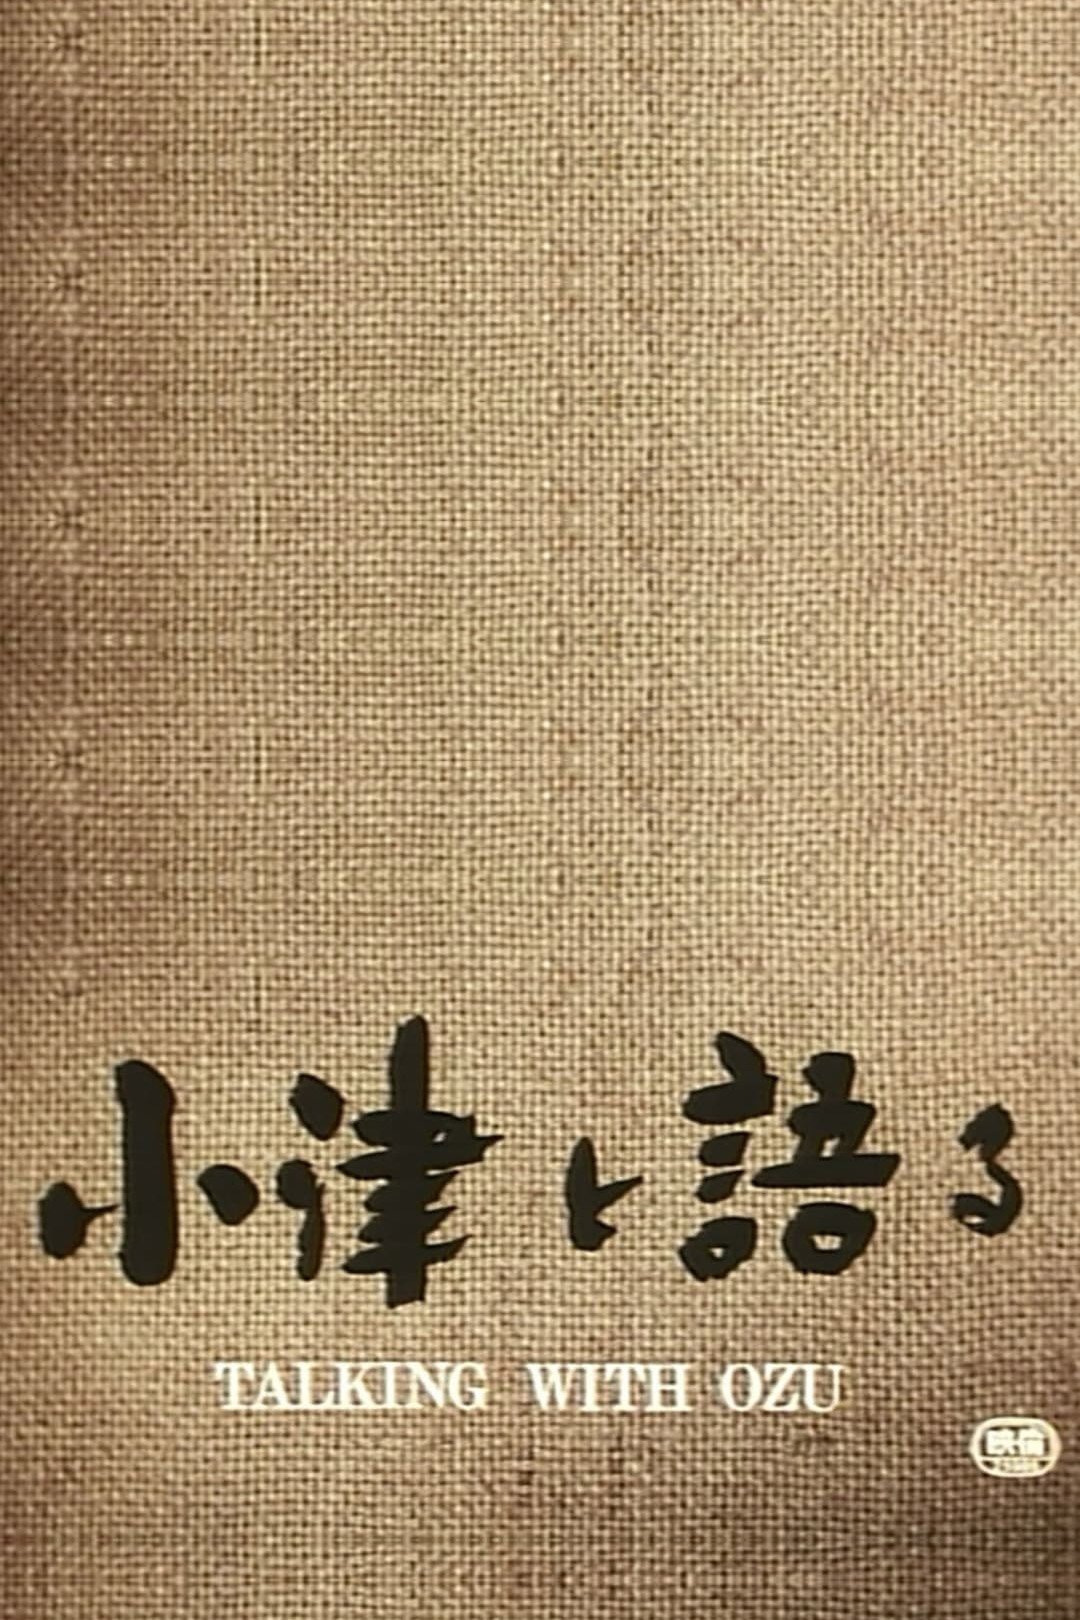 小津と語る
TALKING WITH OZU
映倫